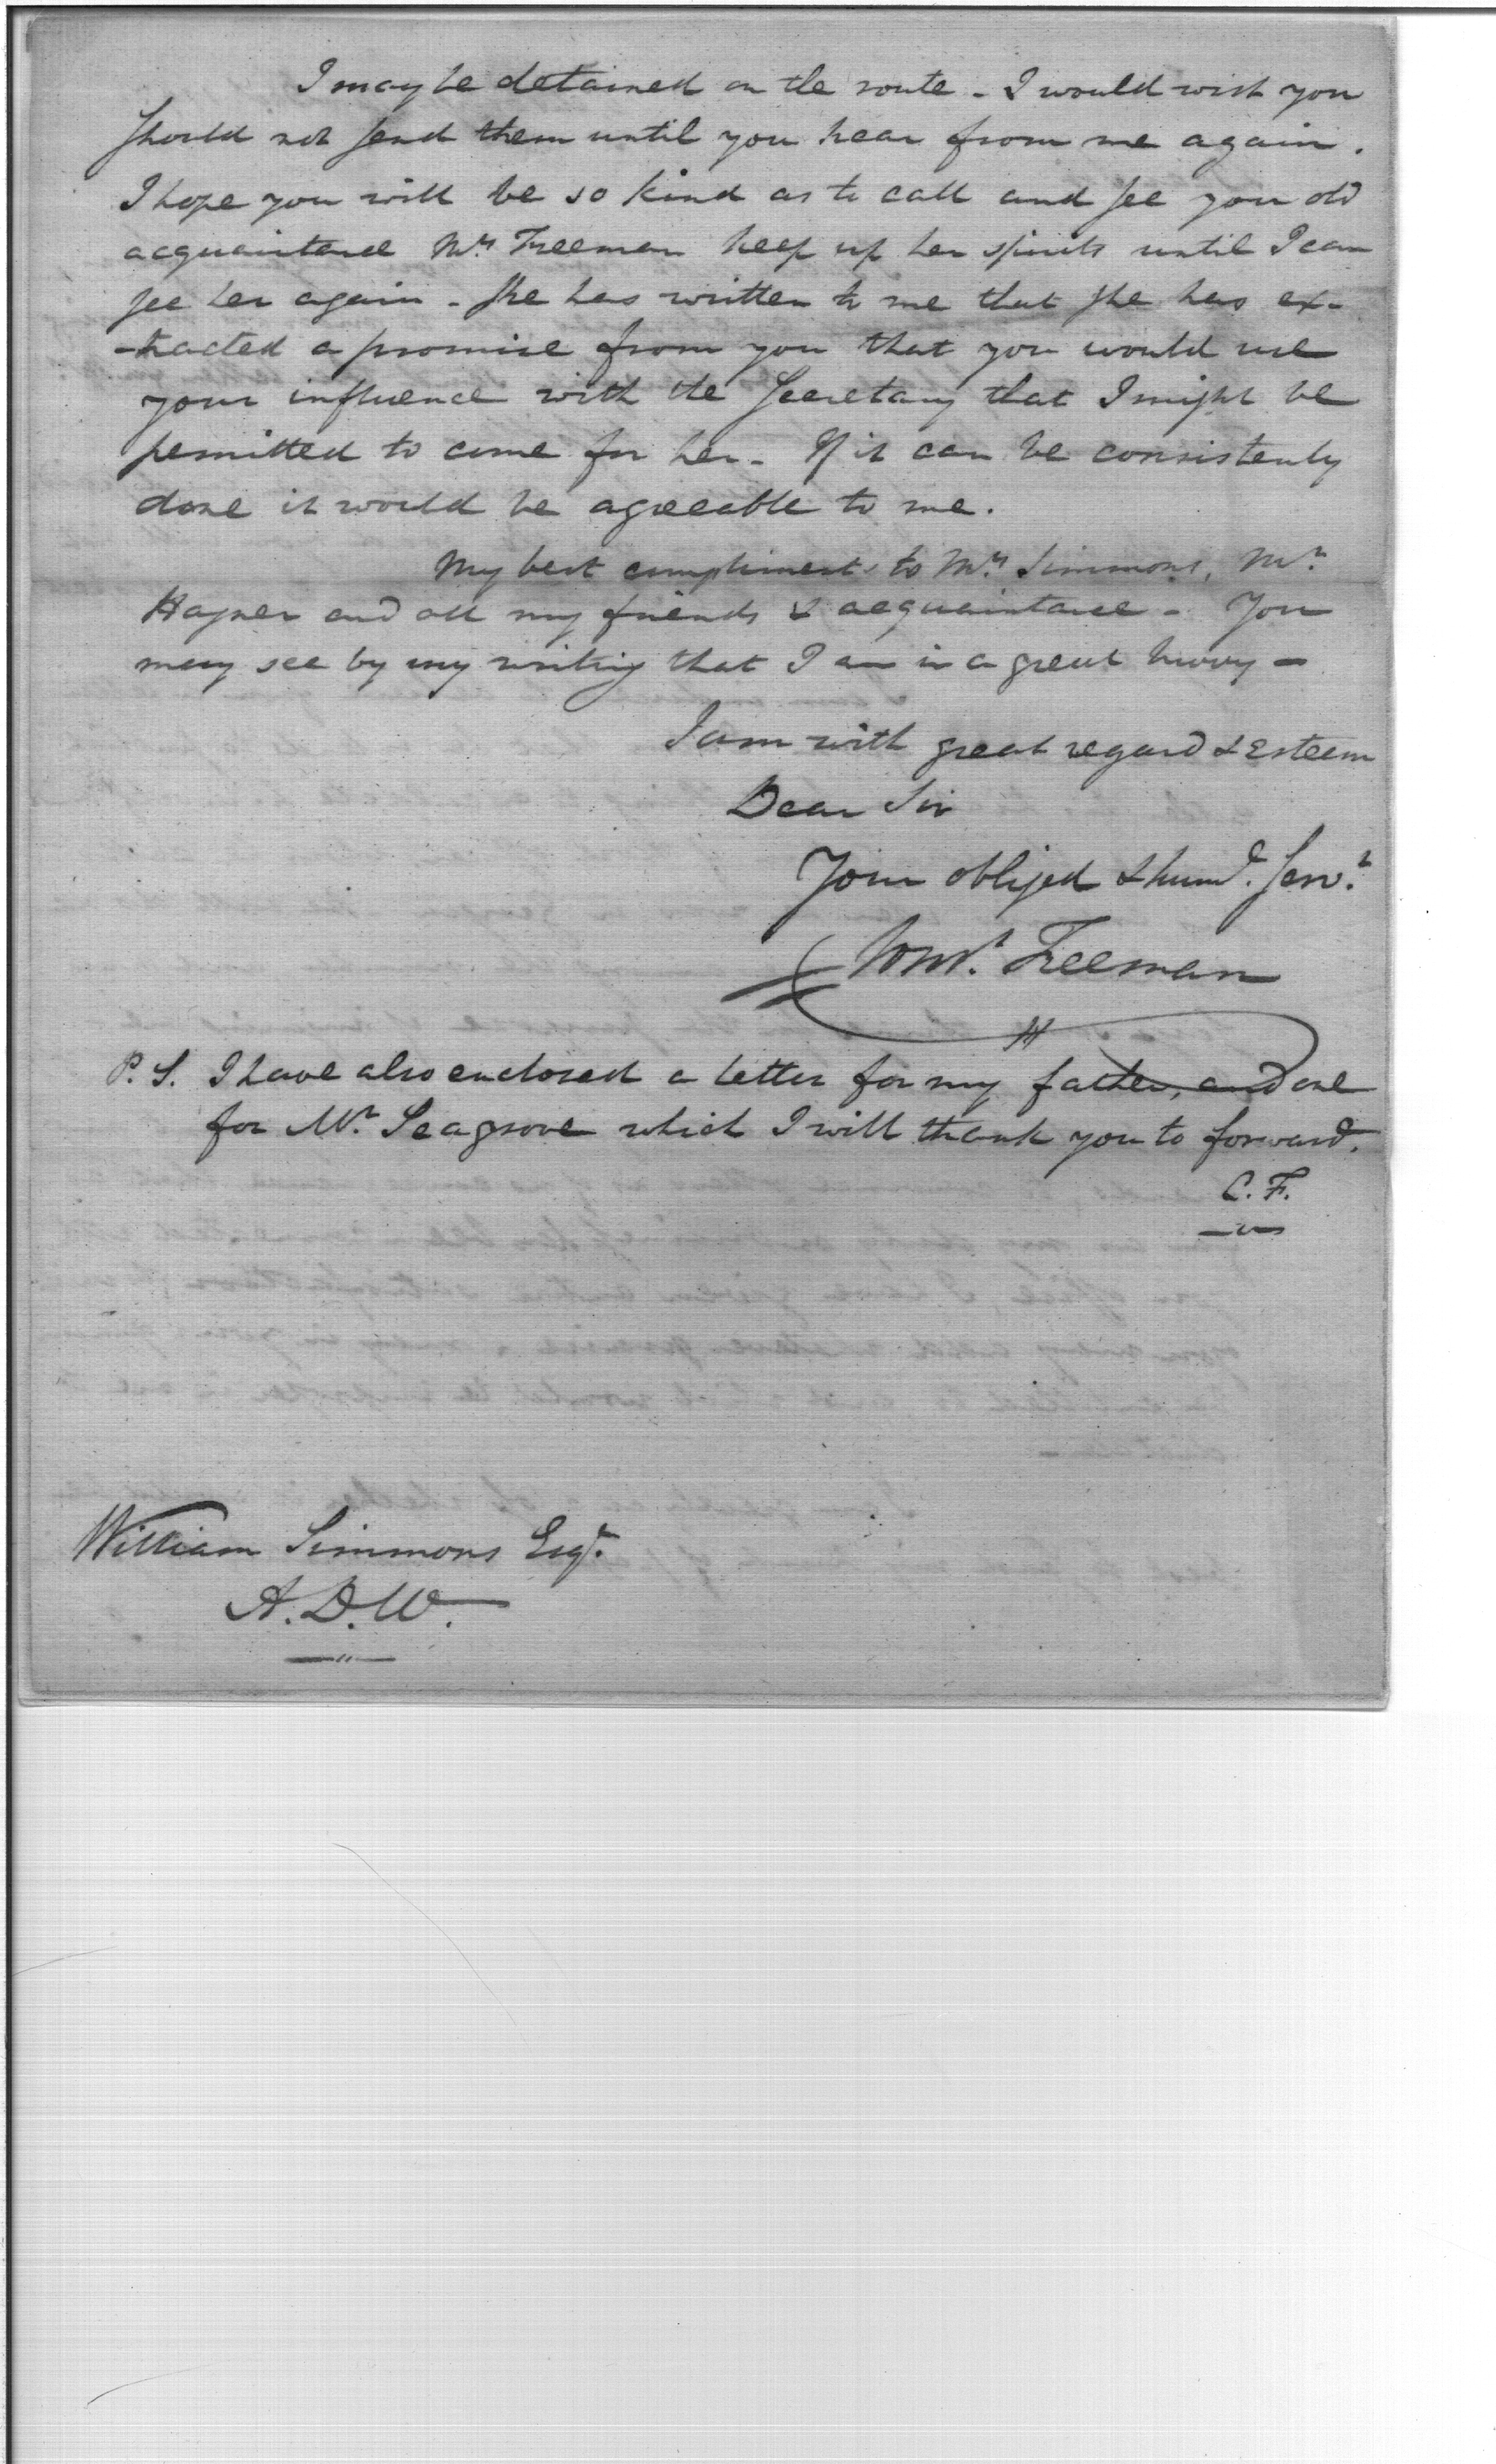 I may be detained on the route - I would wish you
should not send them until you hear from me again.
I hope you will be so kind as to call and see you old
acquaintance Mrs. Freeman keep up her spirits until I can
see her again - she has written to me that she has ex-
-tracted a promise from you that you would use
your influence with the Secretary that I might be
permitted to come for her - If it can be consistently
done it would be agreeable to me.
My best compliments to Mrs. Simmons, Mr.
Hagner and all my friends & acquaintance - You
may see by my writing that I am in a great hurry -
I am with great regard & Esteem
Dear Sir
Your obliged & hume. Servt.
Freeman
P.S. I have also enclosed a letter for my father, and one
for Mr. Seagrove which I will thank you to forward.
C. F.
William Simmons Esqr.
A. D. W.